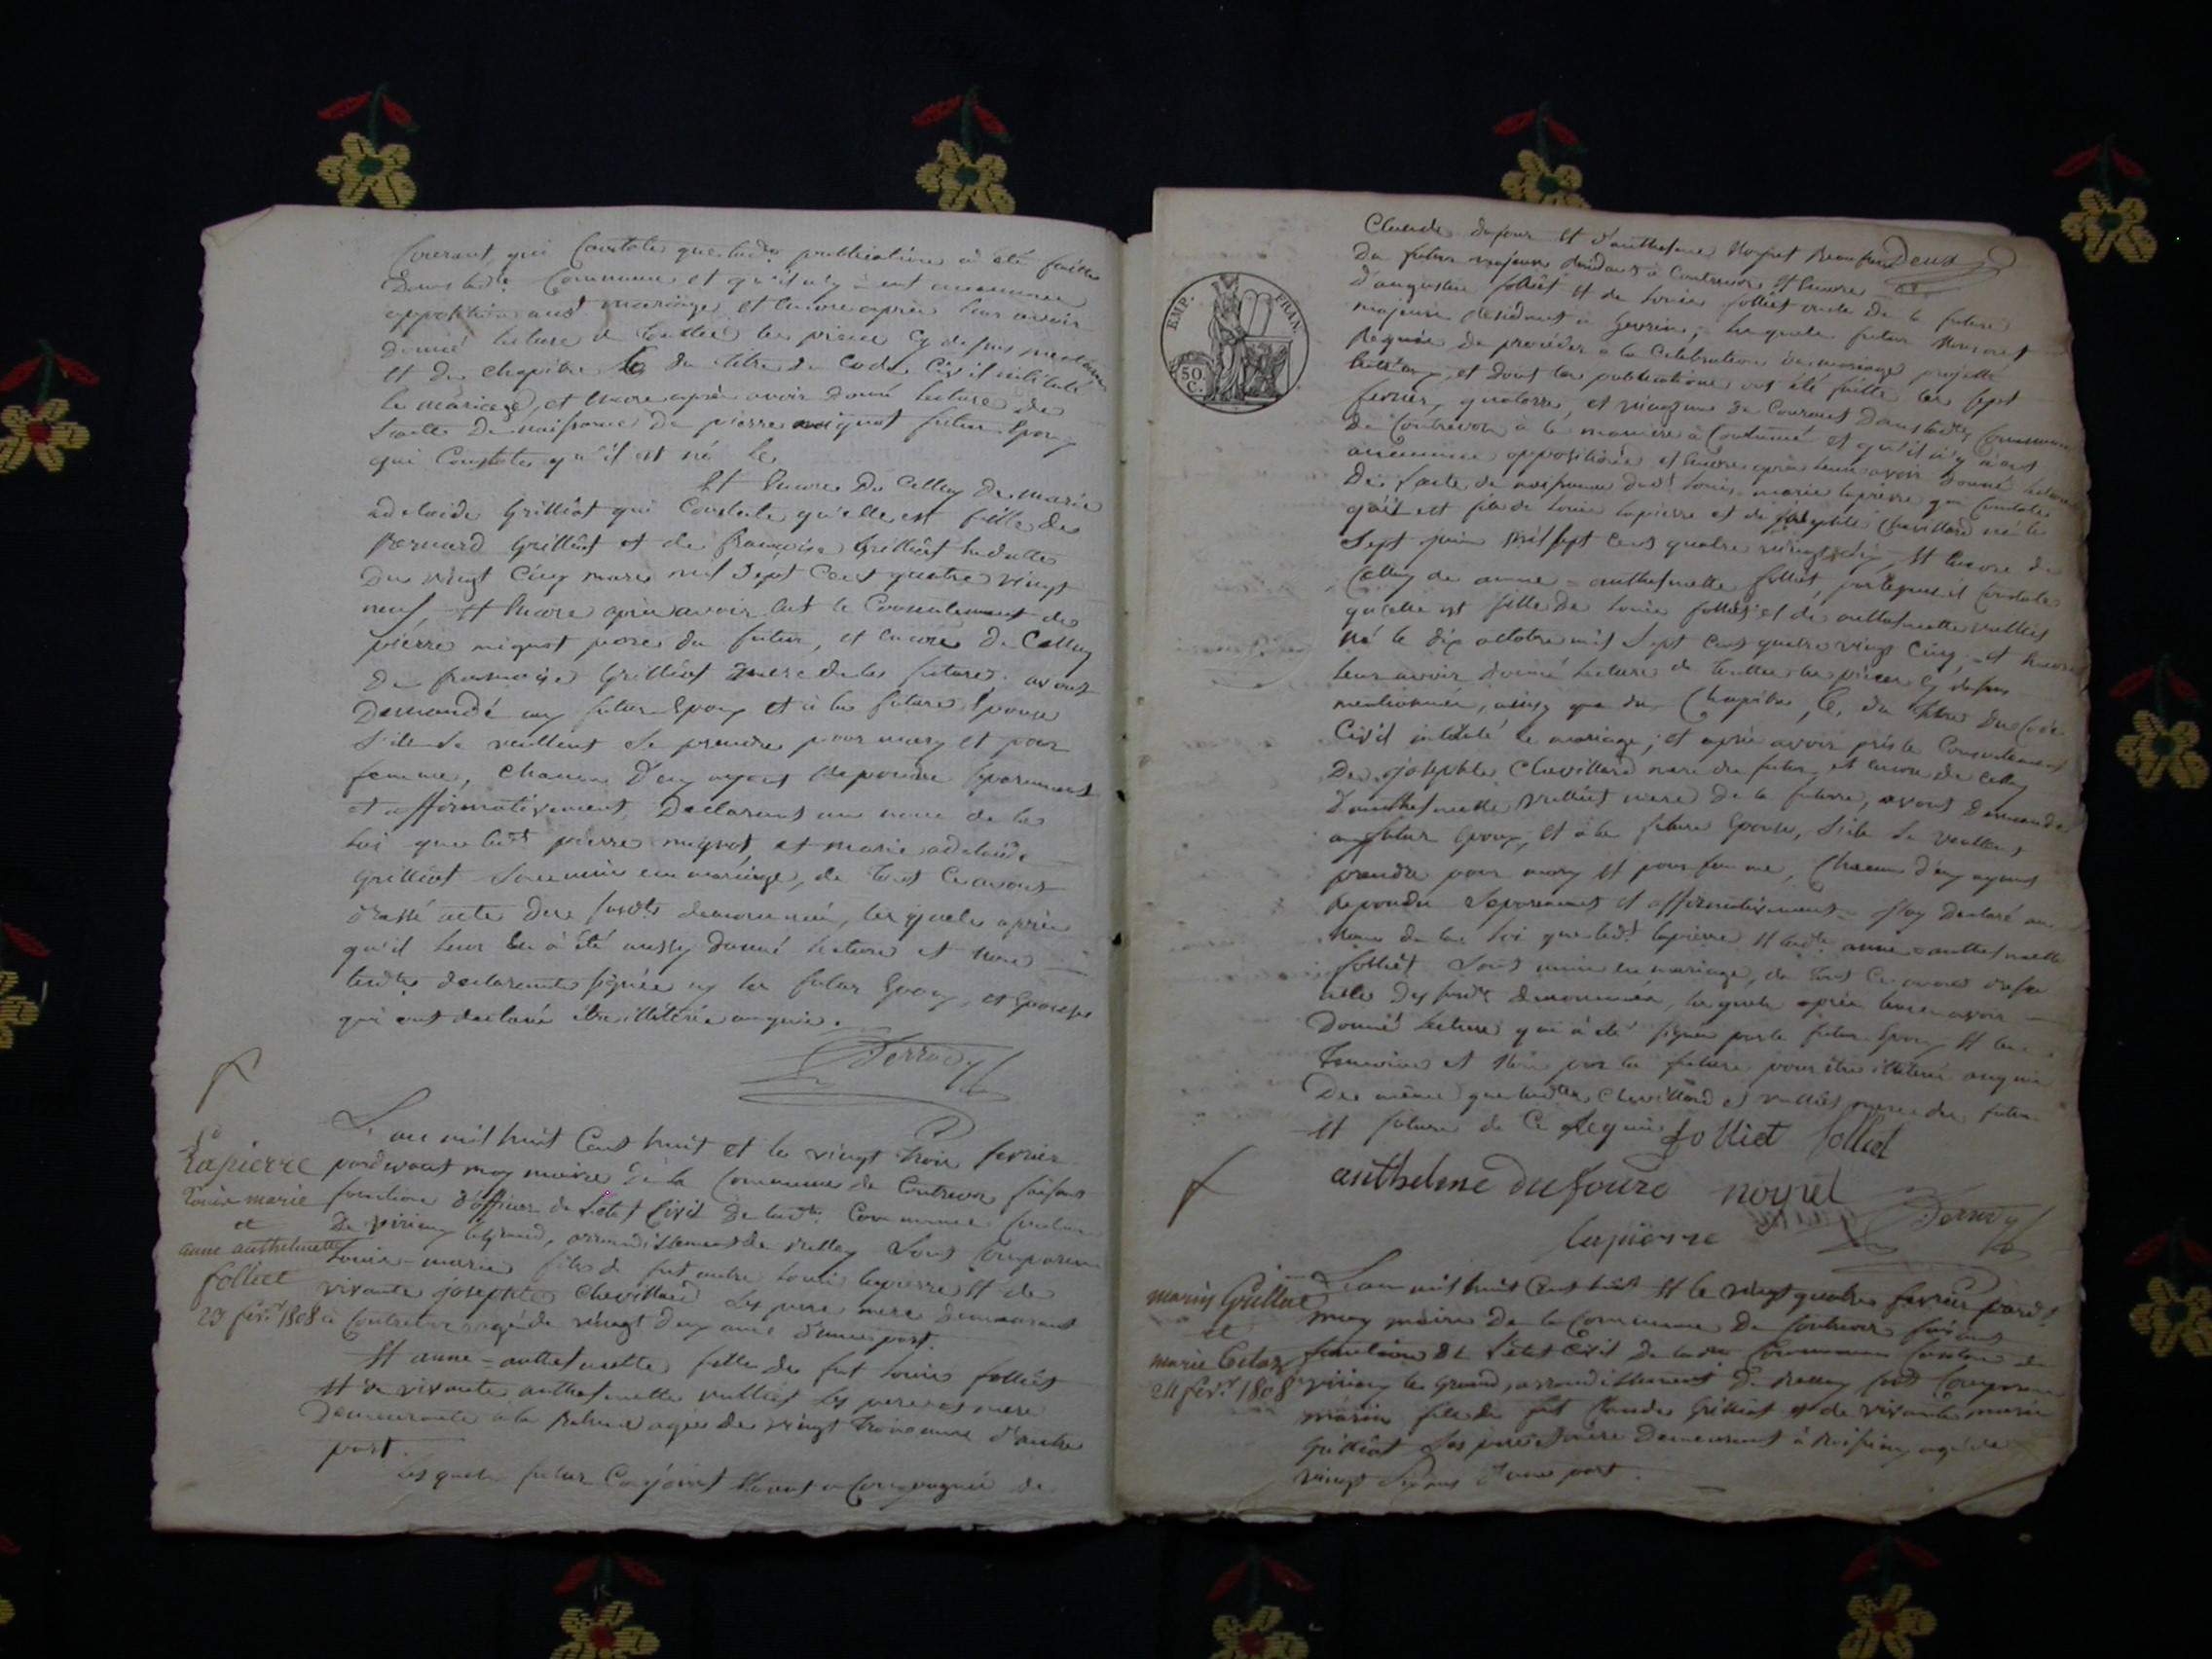 Courant, qui Constate que lad.e publication à été faitte
Dans lad.e Commune et qu'il n'y à eut aucunne
opposition aud.t mariage, et encore après leur avoir
donné lecture de touttes les pieces cy dessus mentionné
et du chapitre 6 du titre du Code Civil intitulé
le mariage, et encore après avoir donné lecture de
l'acte De naissance de pierre mignot futur Epoux
qui Constate qu'il est né le
Et Encore De Celluy de marie
adelaide Grilliot qui Constate qu'elle est fille de
Bernard Grilliot et de françoise Grilliot
Du vingt Cinq mars mil Sept Cent quatre vingt
neuf, Et Encore après avoir le Consentement de
pierre mignot pere du futur, et encore De Celluy
De françoise Grilliot mere de la future, avons
Demandé au futur Epoux et à la future Epouse
S'ils Se veullent Se prendre pour mary et pour
femme, Chacun D'eux ayant Repondu Separement
et affirmativement, Declarons au nom de la
Loi que led.t pierre mignot et marie adelaide
Grilliot Sont unis en mariage, de tout Ce avons
acte des susd.ts denommés, les quels après
qu'il leur en à été aussy donné lecture et nous
declarants signés les futur Epoux, et Epouse
qui ont declaré être illitéré enquis.
Perrody
L'an mil huit Cent huit et le vingt trois fevrier
pardevant moy maire de la Commune de Contrevoz faisant
fonctions d'officier de l'état Civil De lad.te Commune Canton
De virieux le Grand, arrondissement de Belley Sont Comparus
Louis-marie fils de fut autre Louis lapierre Et de
vivante josephte Chevillard Ses pere mere Demeurant
à Contrevoz agé de vingt Deux ans d'une part.
Et anne=anthelmette fille de fut Louis folliet
Et de vivante anthelmette vulliet Ses pere et mere
Demeurante à la agée de vingt trois ans d'autre
part.
Les quels futur Conjoint Etant accompagnés de
Lapierre
Louis marie
et
anne anthelmette
folliet
23 fev.r 1808
Deux
EMP. FRAN.
50 C.
Claude dufour Et d'anthelme Noyret Beaufrere
Du futur majeurs Residants à Contrevoz Et Encore
D'augustin folliet Et de Louis folliet oncle De la future
majeurs Residants à ; Les quels futur
Requis De proceder à la Celebration du mariage projetté
, et Dont les publications ont été faitte les sept
fevrier, quatorze, et vingt un du Courant Dans lad.te Commune
De Contrevoz à la maniere à Coutumé et qu'il n'y à eut
aucunne opposition et Encore après leur avoir Donné lecture
De l'acte de naissance dud.t Louis marie lapierre qui Constate
qu'il est fils de Louis lapierre et de josephte Chevillard né le
Sept juin mil Sept Cent quatre vingt , Et Encore de
Celluy de anne=anthelmette folliet, par lequel il Constate
qu'elle est fille De Louis folliet et de anthelmette vulliet
Né le dix octobre mil Sept Cent quatre vingt Cinq, et Encore
leur avoir donné lecture de touttes les pieces cy dessus
mentionné, ainsy que du Chapitre 6, du titre Du Code
Civil intitulé le mariage; et après avoir pris le Consentement
De josephte Chevillard mere du futur, et encore de Celluy
D'anthelmette vulliet mere de la future, avons Demandé
au futur Epoux, Et à la future Epouse, S'ils Se veullent
prendre pour mary Et pour femme, Chacun d'eux ayant
Repondu Separement et affirmativement, declaré au
Nom de la Loi que led.t lapierre Et lad.te anne=anthelmette
folliet Sont unis en mariage, de tout Ce avons
acte des susd.t denommés, les quels après leur en avoir
Donné lecture qui à été signée par le futur Epoux Et les
temoins et Non par la future pour être illiteré enquise
De même que lad.te Chevillard et vulliet mere du futur
Et future de Ce Requis folliet folliet
anthelme dufoure noyret
lapierre Perrody
L'an mil huit Cent huit Et le vingt quatre fevrier pard.t
moy maire De la Commune De Contrevoz faisant
fonctions De l'état Civil De lad.te Commune Canton de
virieux le Grand, arrondissement De Belley Sont Comparus
marin fils de fut Claude Grilliot Et de vivante marie
Grilliot Ses pere et mere Demeurant à agé de
vingt Six ans d'une part.
marin Grilliot
et
marie
24 fev.r 1808